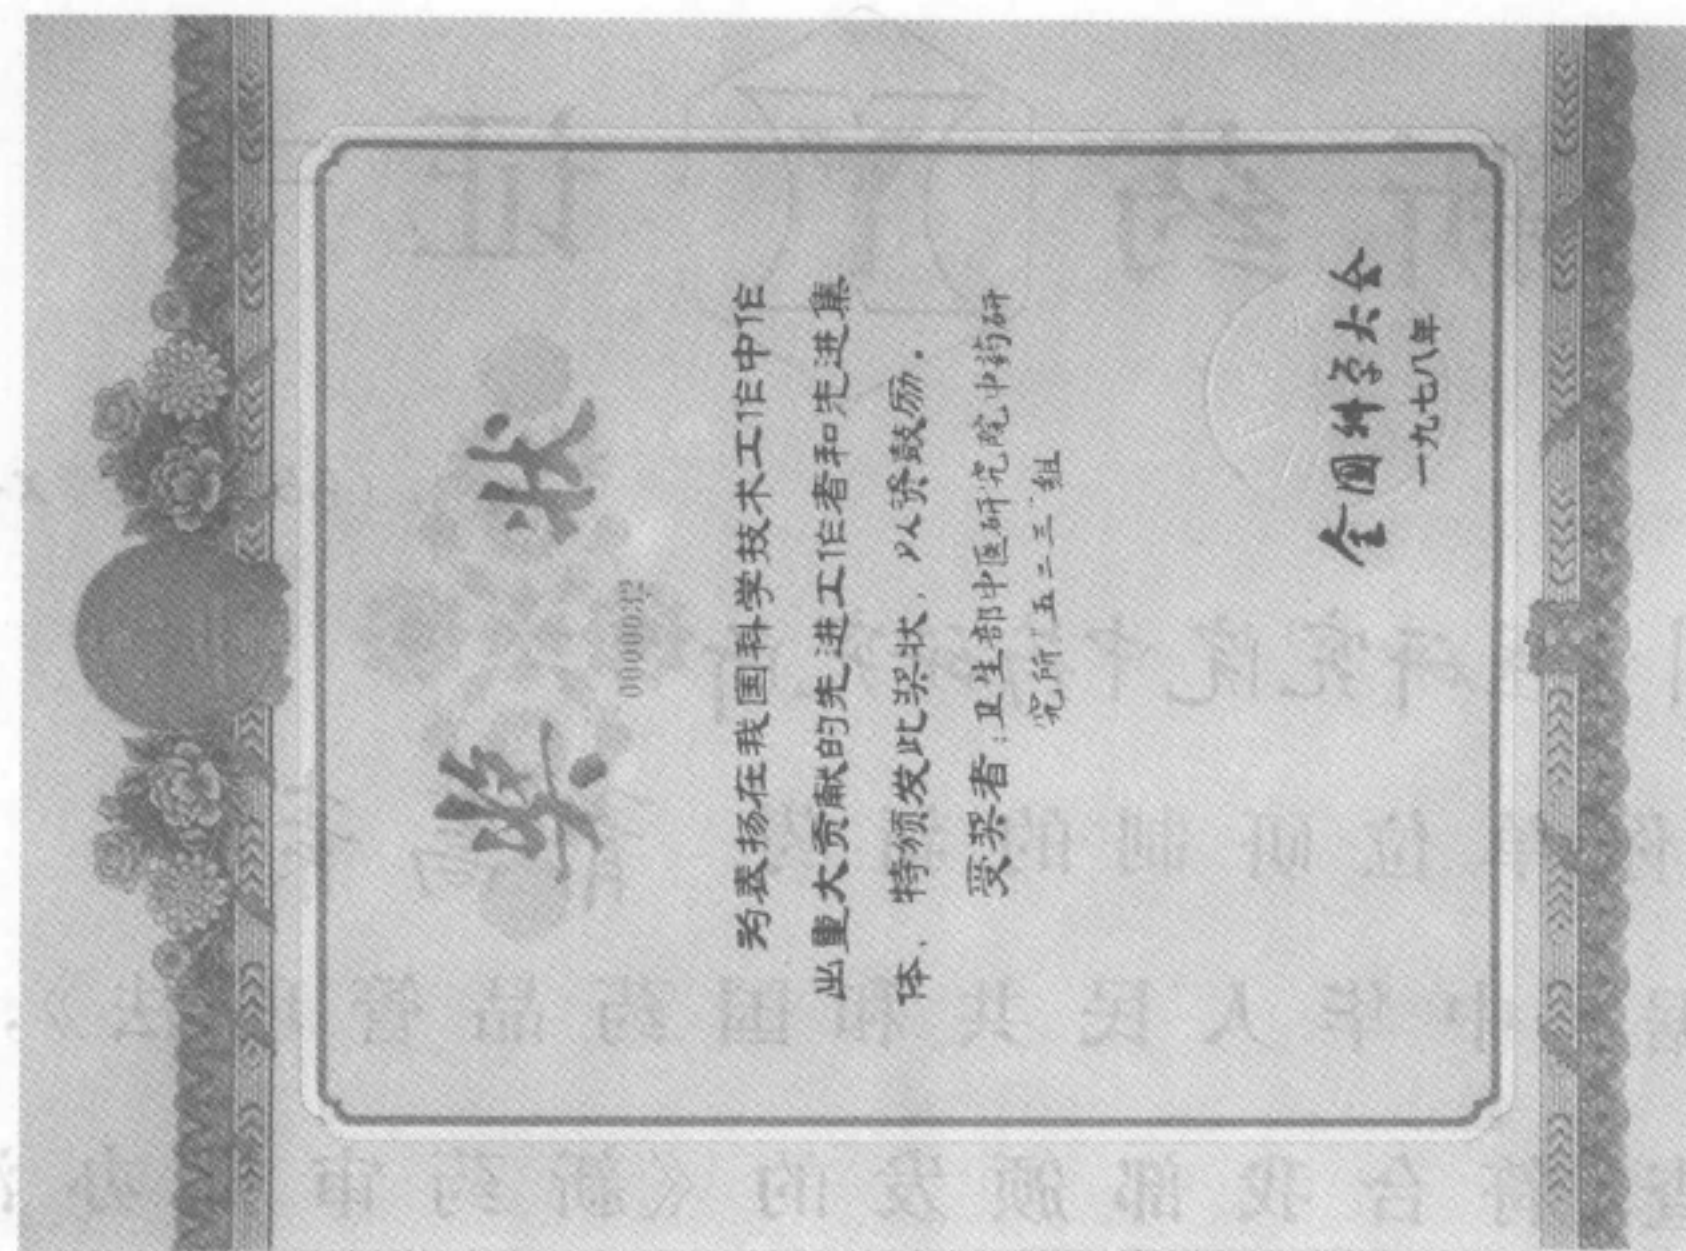 奖状
为表扬在我国科学技术工作中作
出重大贡献的先进工作者和先进集
体，特颁发此奖状，以资鼓励。
受奖者：卫生部中医研究院中药研
究所“五二三”组
全国科学大会
一九七八年